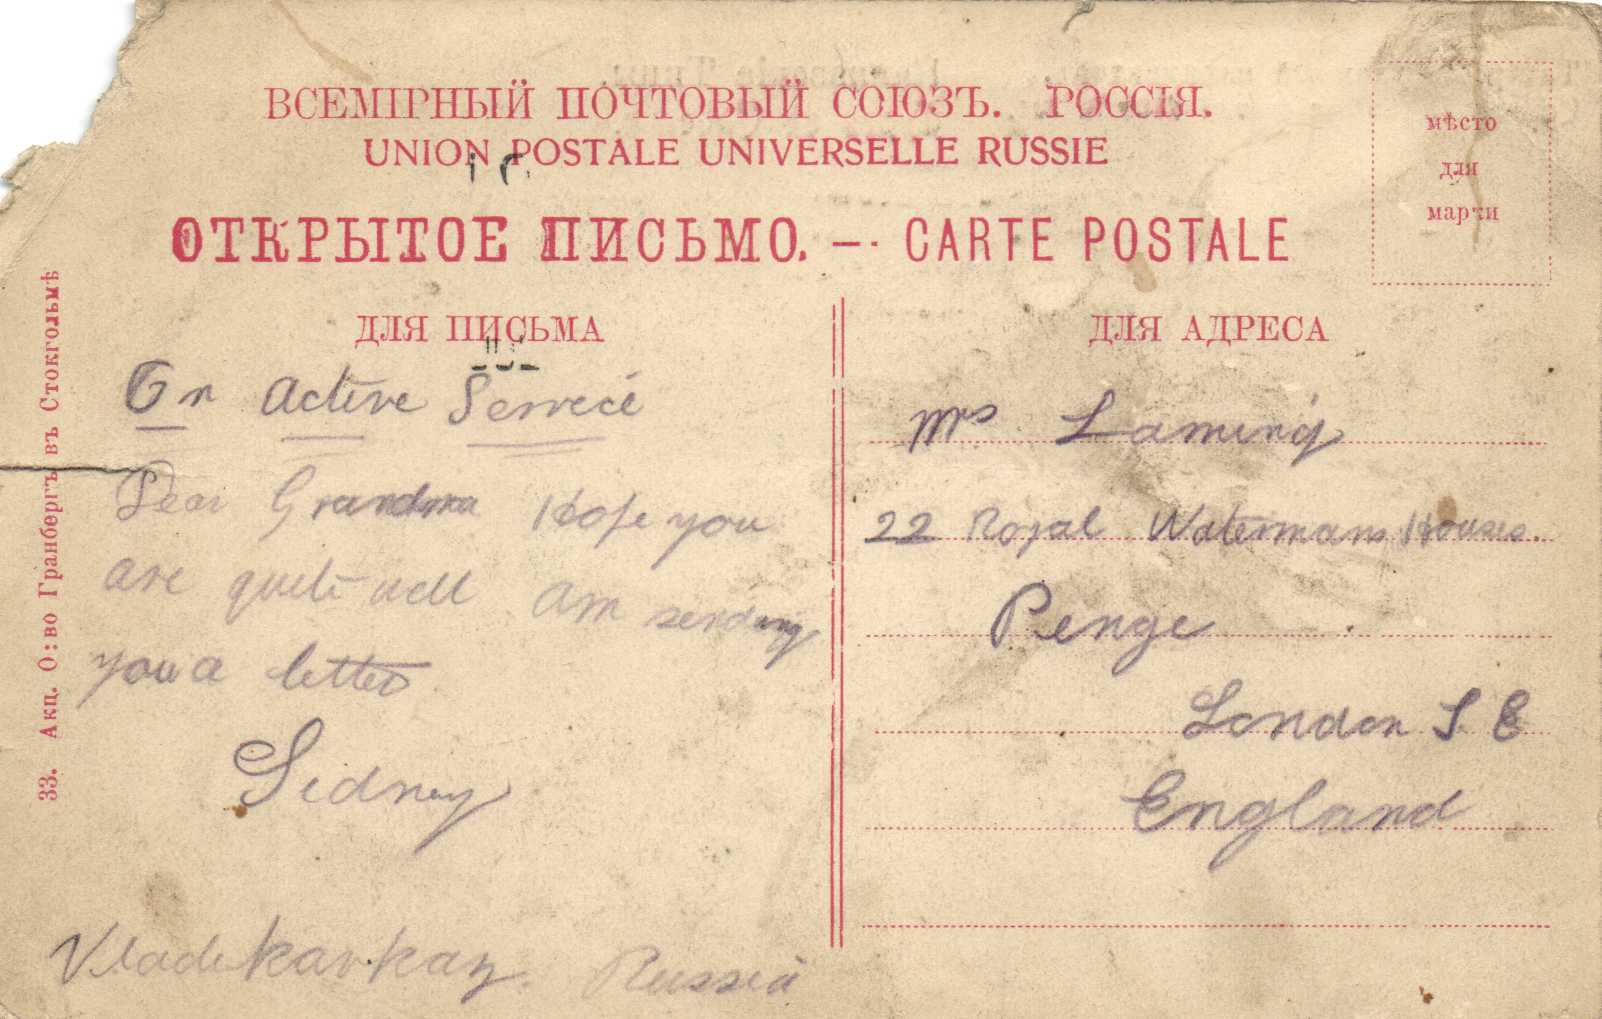 ВСЕМІРНЫЙ ПОЧТОВЫЙ СОЮЗЪ. РОССІЯ.
UNION POSTALE UNIVERSELLE RUSSIE
ОТКРЫТОЕ ПИСЬМО. — CARTE POSTALE
мѣсто
для
марки
33. Акц. О:во Гранбергъ въ Стокгольмѣ
ДЛЯ ПИСЬМА
On Active Service
Dear Grandma Hope you
are quite well am sending
you a letter
Sidney
Vladikavkaz. Russia
ДЛЯ АДРЕСА
Mrs Laming
22 Royal Watermans Houses.
Penge
London S E
England